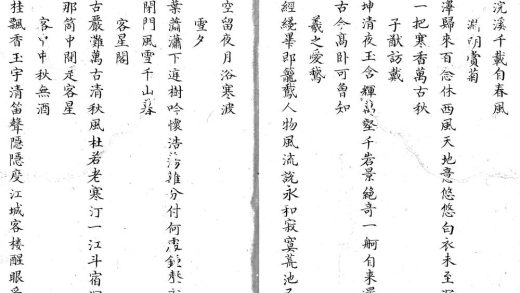 沅溪千載自春風
淵明賞菊
澤歸來百念休西風天地意悠悠白衣未至
一把寒香萬古秋
子猷訪戴
坤清夜玉含輝萬壑千岩景絕奇一舸自來還
古今高卧可曾知
羲之愛鵝
經纔畢即籠載人物風流說永和寂寞荒池
空留夜月浴寒波
雪夕
葉蕭瀟下遶樹吟懷浩蕩誰分付何處鐘聲
閉門風雪千山暮
客星閣
古嚴灘萬古清秋風杜若老寒汀一江斗宿
那箇中間是客星
客中中秋無酒
桂飄香玉宇清笛聲隱隱度江城客樓醒眼